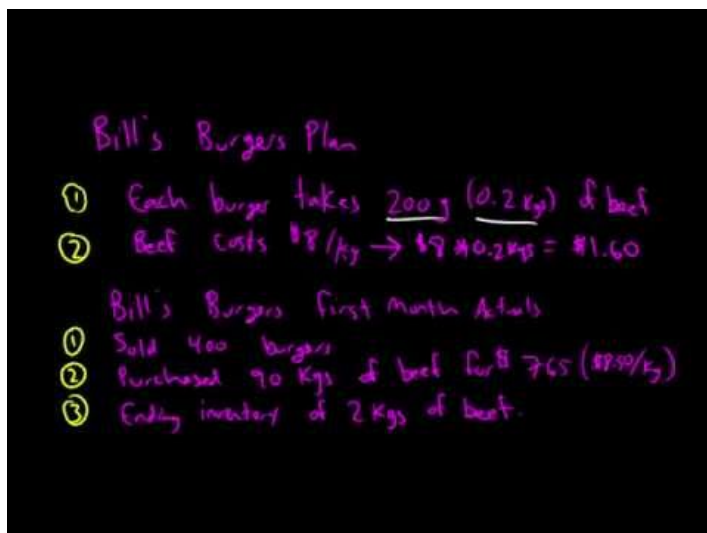 Bill's Burgers Plan
① Each burger takes 200g (0.2 Kgs) of beef
② Beef costs $8/kg → $8 * 0.2Kgs = $1.60
Bill's Burgers First Month Actuals
① Sold 400 burgers
② Purchased 90 Kgs of beef for $765 ($8.50/Kg)
③ Ending inventory of 2 Kgs of beef.